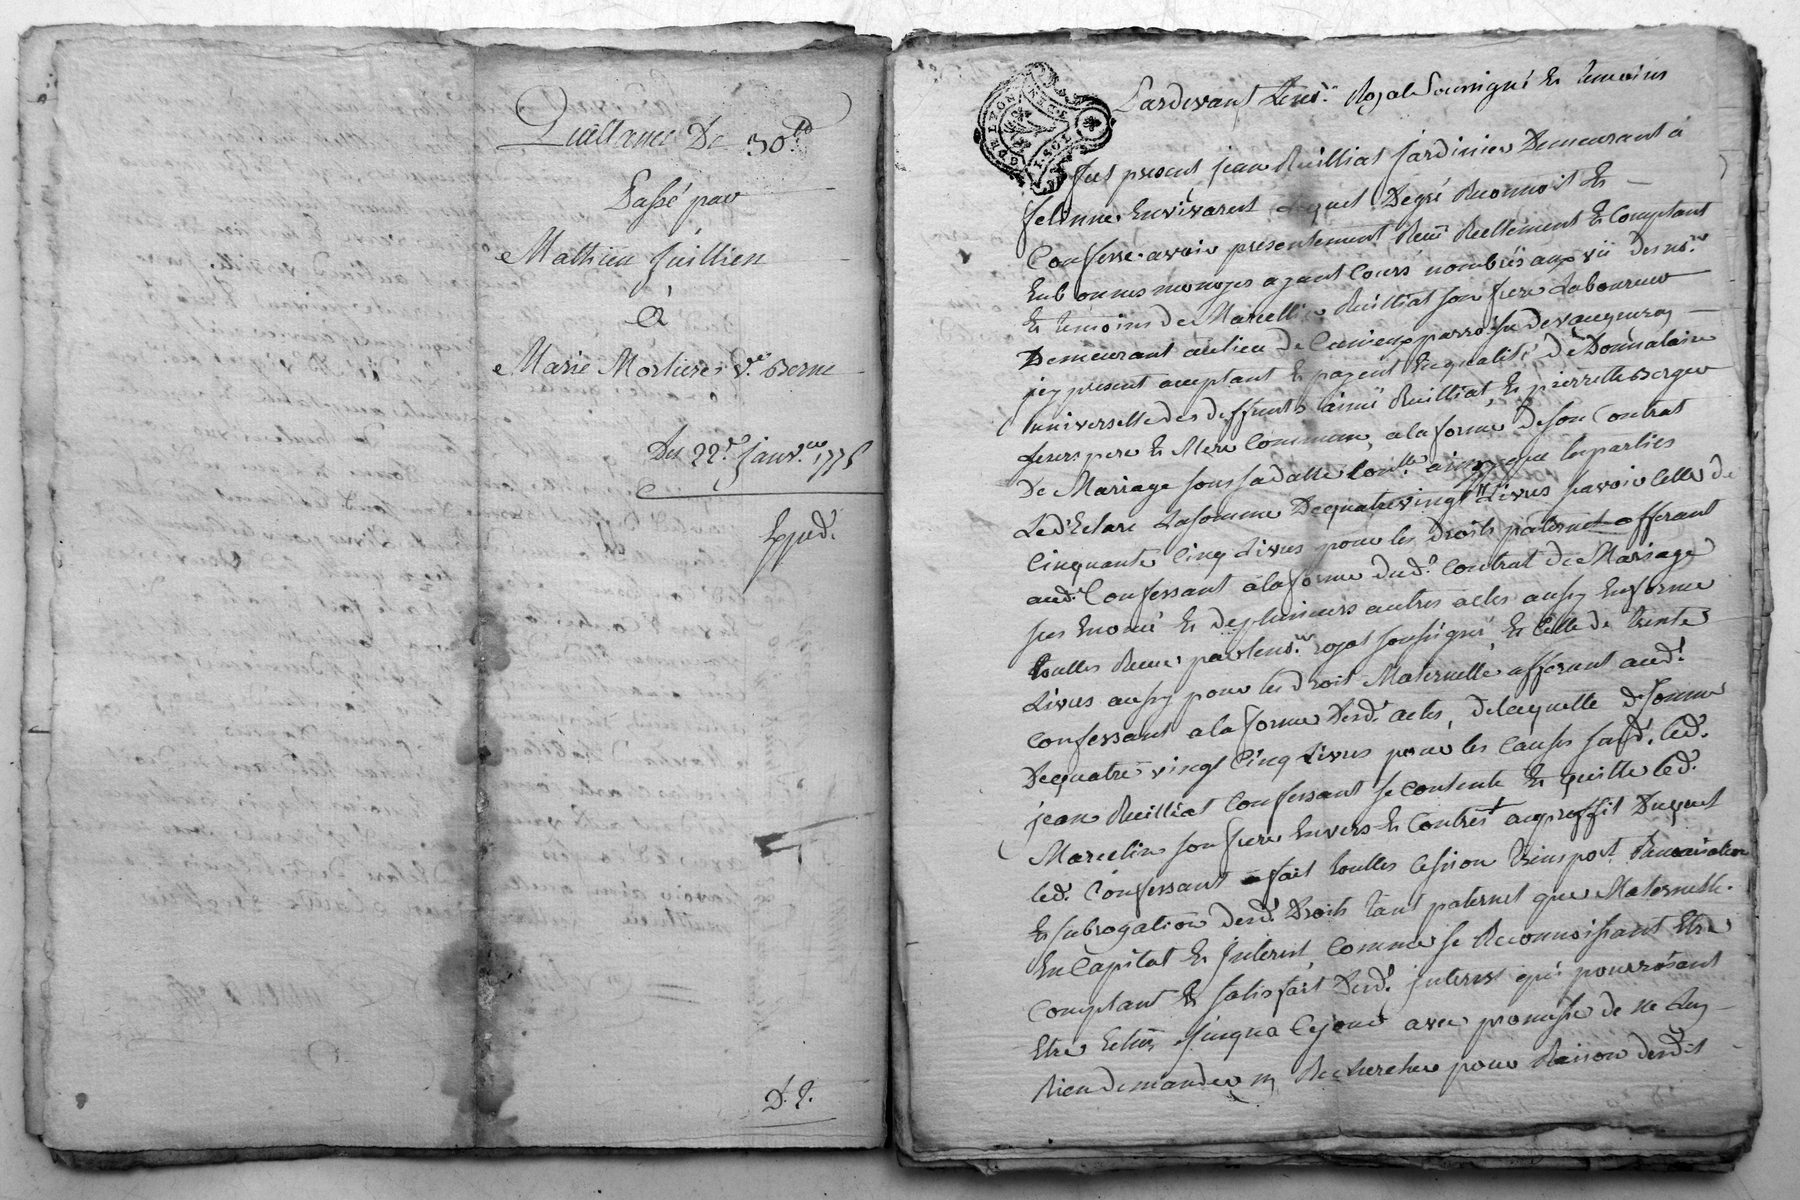 Quittance De 30.lt
Passé par
Mathieu Jullien
à
Marie Mortieres v.e Berne
Du 22.e Janv.er 1775
Exped.
D. J.
GDE LYON
Pardevant Le no.re Royal Soussigné Et temoins
fut present jean Ruilliat Jardinier Demeurant à
felinne En vivarest Lequel De gré Reconnoit Et
Confesse avoir presentement Receu Reellement Et Comptant
En bonnes monoyes ayant Cours nombrés au vü Des no.re
Et témoins de Marcellin Ruilliat son frere Laboureur
Demeurant au lieu de parroisse de vaugneray
icy present acceptant Et payent En qualité de Donnataire
universelle des deffunts aimé Ruilliat, Et pierrette Berger
Leurs pere Et Mere Commun, a la forme de son Contrat
De Mariage sous sa datte ainsy que les parties
Led.t Eclare La somme De quatre vingt Livres savoir Celle de
Cinquante Cinq Livres pour les Droits paternel afferant
aud.t Confessant a la forme dud.t Contrat de Mariage
sus Enoncé Et de plusieurs autres actes aussy En forme
touttes Reçues par le no.re royal soussigné, Et Celle de trente
Livres aussy pour les droit Maternelle afferant aud.t
confessant a la forme desd.t actes, De laquelle De somme
De quatre vingt Cinq Livres pour les Causes susd. led.
jean Ruilliat Confessant se contente Et quitte led.
Marcelin son frere Envers Et Contres au proffit Duquel
led. Confessant fait touttes Cession transport
Et subrogation desd.t Droits tant paternel que Maternelle
En Capital Et Jnterest, Comme se Reconnoissant Etre
Comptant Et satisfait Desd.t Jnterest qui pourroient
Etre Echus jusqua Ce jour avec promesse de ne Luy
Rien demander ny Rechercher pour Raison desd.t